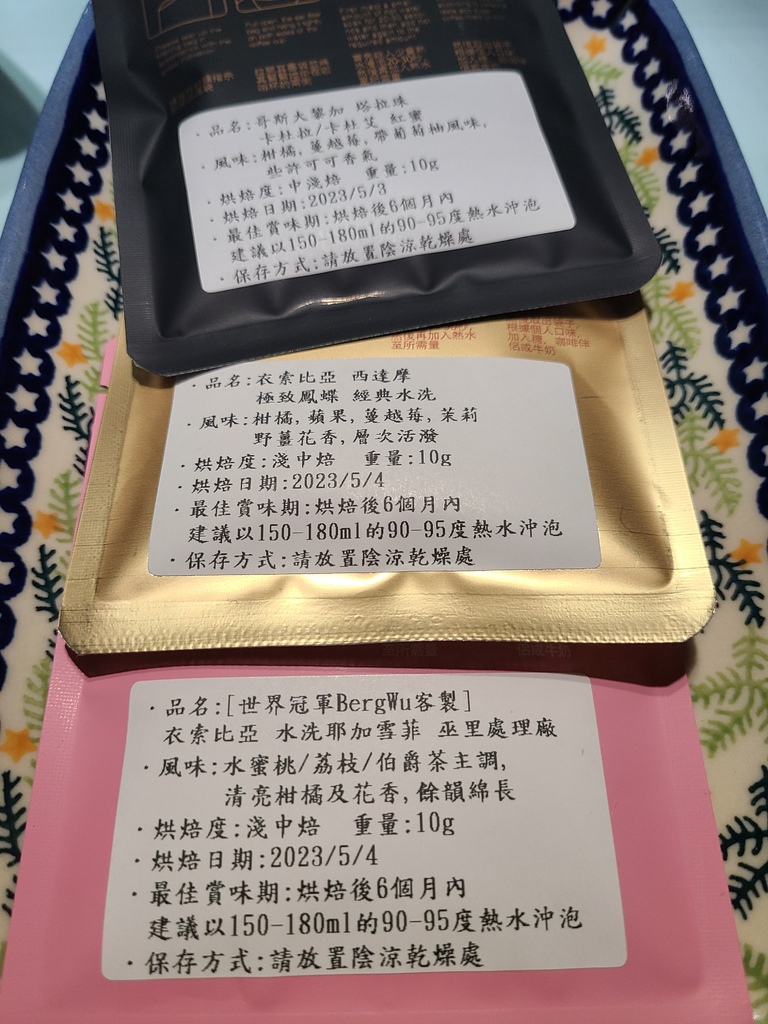 ·品名:哥斯大黎加 塔拉珠
卡杜拉/卡杜艾 紅蜜
·風味:柑橘,蔓越莓,帶葡萄柚風味,
些許可可香氣 重量:10g
·烘焙度:中淺焙
·烘焙日期:2023/5/3
·最佳賞味期:烘焙後6個月內
建議以150-180ml的90-95度熱水沖泡
·保存方式:請放置陰涼乾燥處
然後再加入熱水
至所需量
根據個人口味,
加入糖,咖啡伴
侶或牛奶
·品名:衣索比亞 西達摩
極致鳳蝶 經典水洗
·風味:柑橘,蘋果,蔓越莓,茉莉
野薑花香,層次活潑
·烘焙度:淺中焙 重量:10g
·烘焙日期:2023/5/4
·最佳賞味期:烘焙後6個月內
建議以150-180ml的90-95度熱水沖泡
·保存方式:請放置陰涼乾燥處
至所需量
侶或牛奶
·品名:[世界冠軍BergWu客製]
衣索比亞 水洗耶加雪菲 巫里處理廠
·風味:水蜜桃/荔枝/伯爵茶主調,
清亮柑橘及花香,餘韻綿長
·烘焙度:淺中焙 重量:10g
·烘焙日期:2023/5/4
·最佳賞味期:烘焙後6個月內
建議以150-180ml的90-95度熱水沖泡
·保存方式:請放置陰涼乾燥處